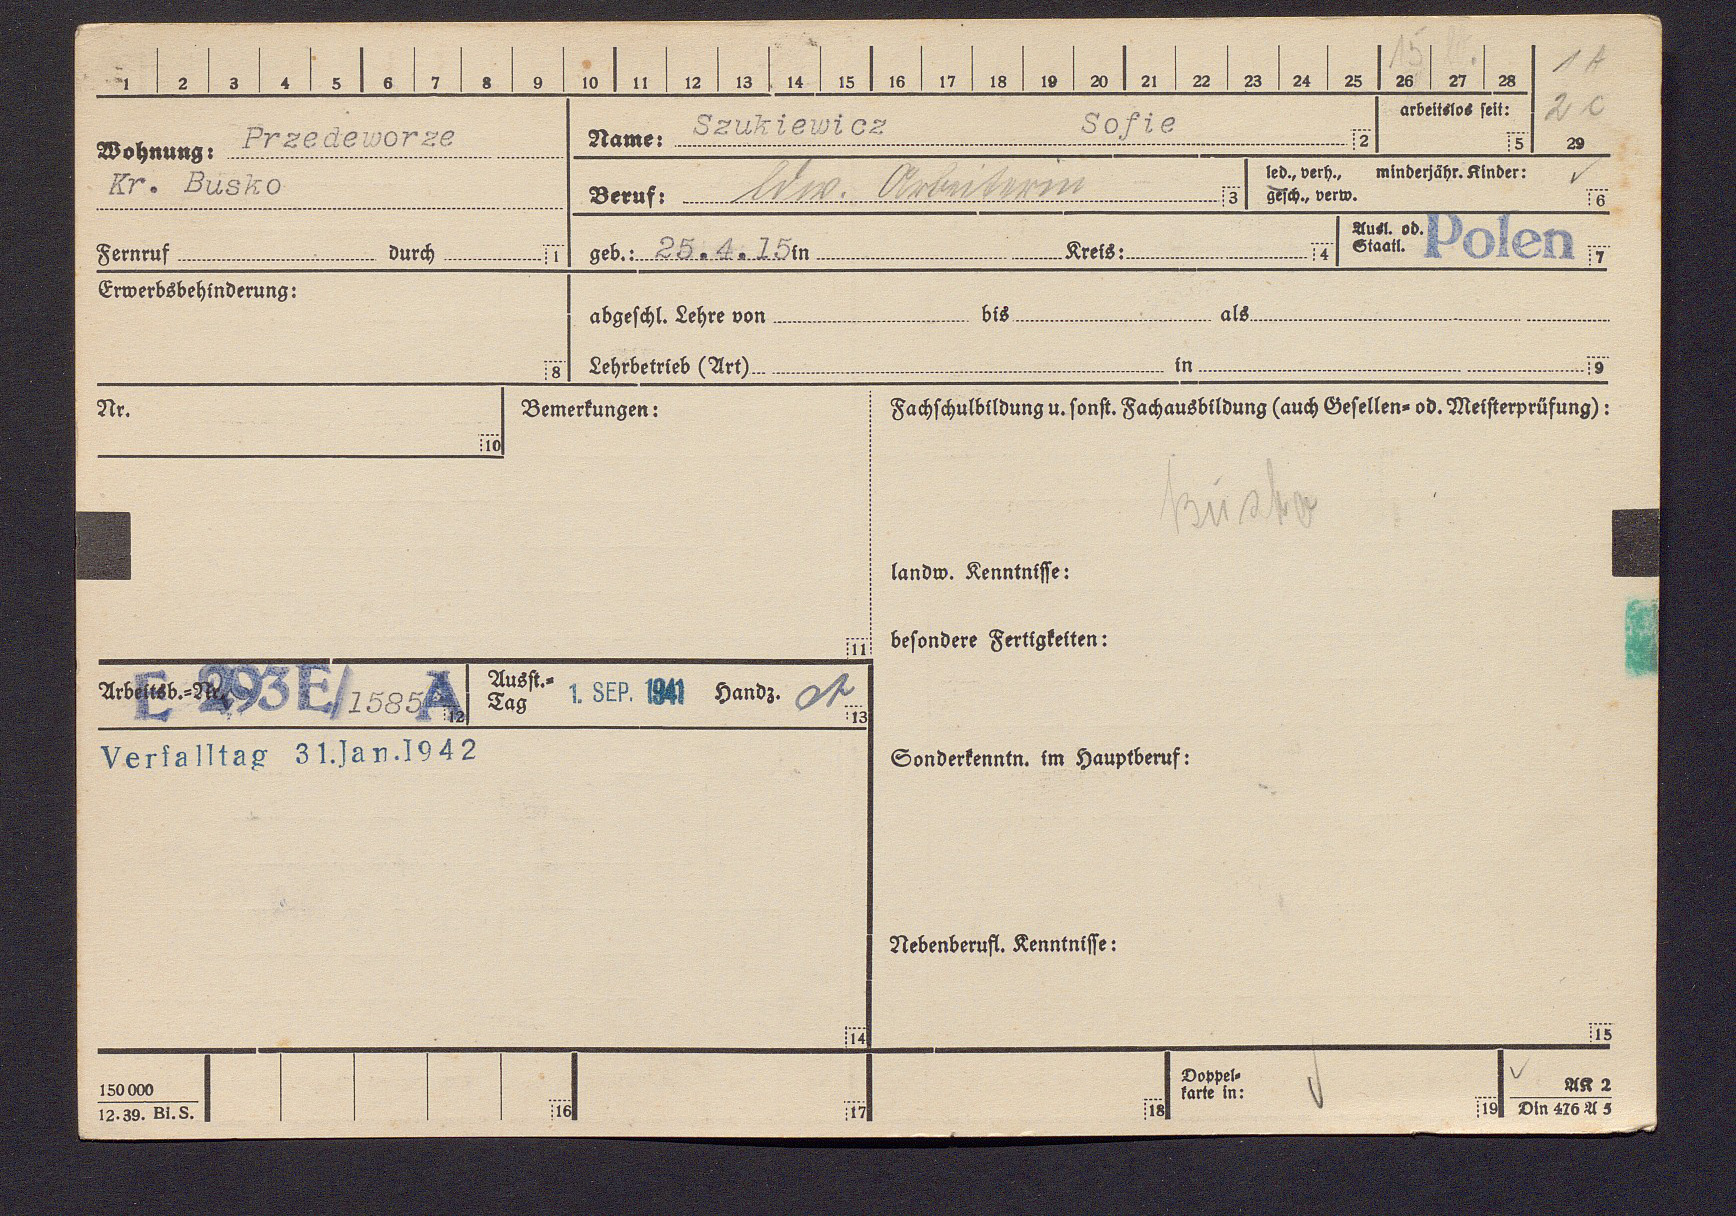 15
1 2 3 4 5 6 7 8 9 10 11 12 13 14 15 16 17 18 19 20 21 22 23 24 25 26 27 28
1 A
2 C
29
Wohnung: Przedeworze
Kr. Busko
Fernruf durch 1
Name: Szukiewicz Sofie 2
arbeitslos seit: 5
Beruf: ldw. Arbeiterin 3
led., verh., minderjähr. Kinder:
gesch., verw. 6
geb.: 25.4.15 in Kreis: 4
Ausl. od. Staatl. Polen 7
Erwerbsbehinderung:
8
abgeschl. Lehre von bis als
Lehrbetrieb (Art) in 9
Nr.
10
Bemerkungen:
11
Fachschulbildung u. sonst. Fachausbildung (auch Gesellen- od. Meisterprüfung):
Busko
landw. Kenntnisse:
besondere Fertigkeiten:
Arbeitsb.-Nr. E 293E/1585 A 12
Ausst.-Tag 1. SEP. 1941 Handz. 13
Verfalltag 31.Jan.1942
14
Sonderkenntn. im Hauptberuf:
Nebenberufl. Kenntnisse:
15
150 000
12. 39. Bi. S.
16
17
18
Doppel-
karte in:
19
AK 2
Din 476 A 5